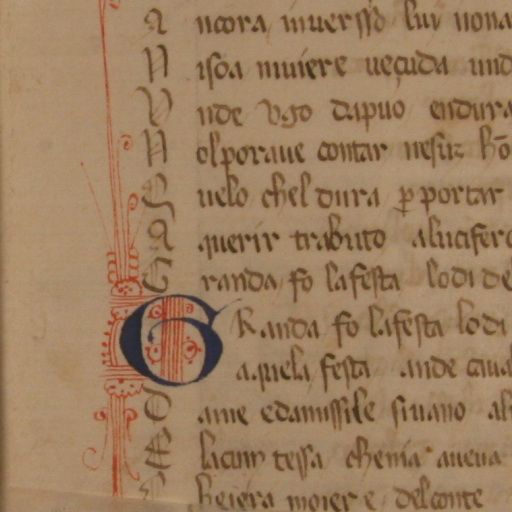 A ncora inuerss̄o lui nona
N isoa muiere ueçuda und
V nde Vgo dapuo endura
N ol poraue contar nesuz hō
Q uelo chel dura ꝑ portar
A querir trabuto alucifero
G randa fo la festa lo di de
GRanda fo la festa lo di
a quela festa ande caual
D ame edamissile siuano al
E la cum tessa chenia aueua
heiera moier e del conte